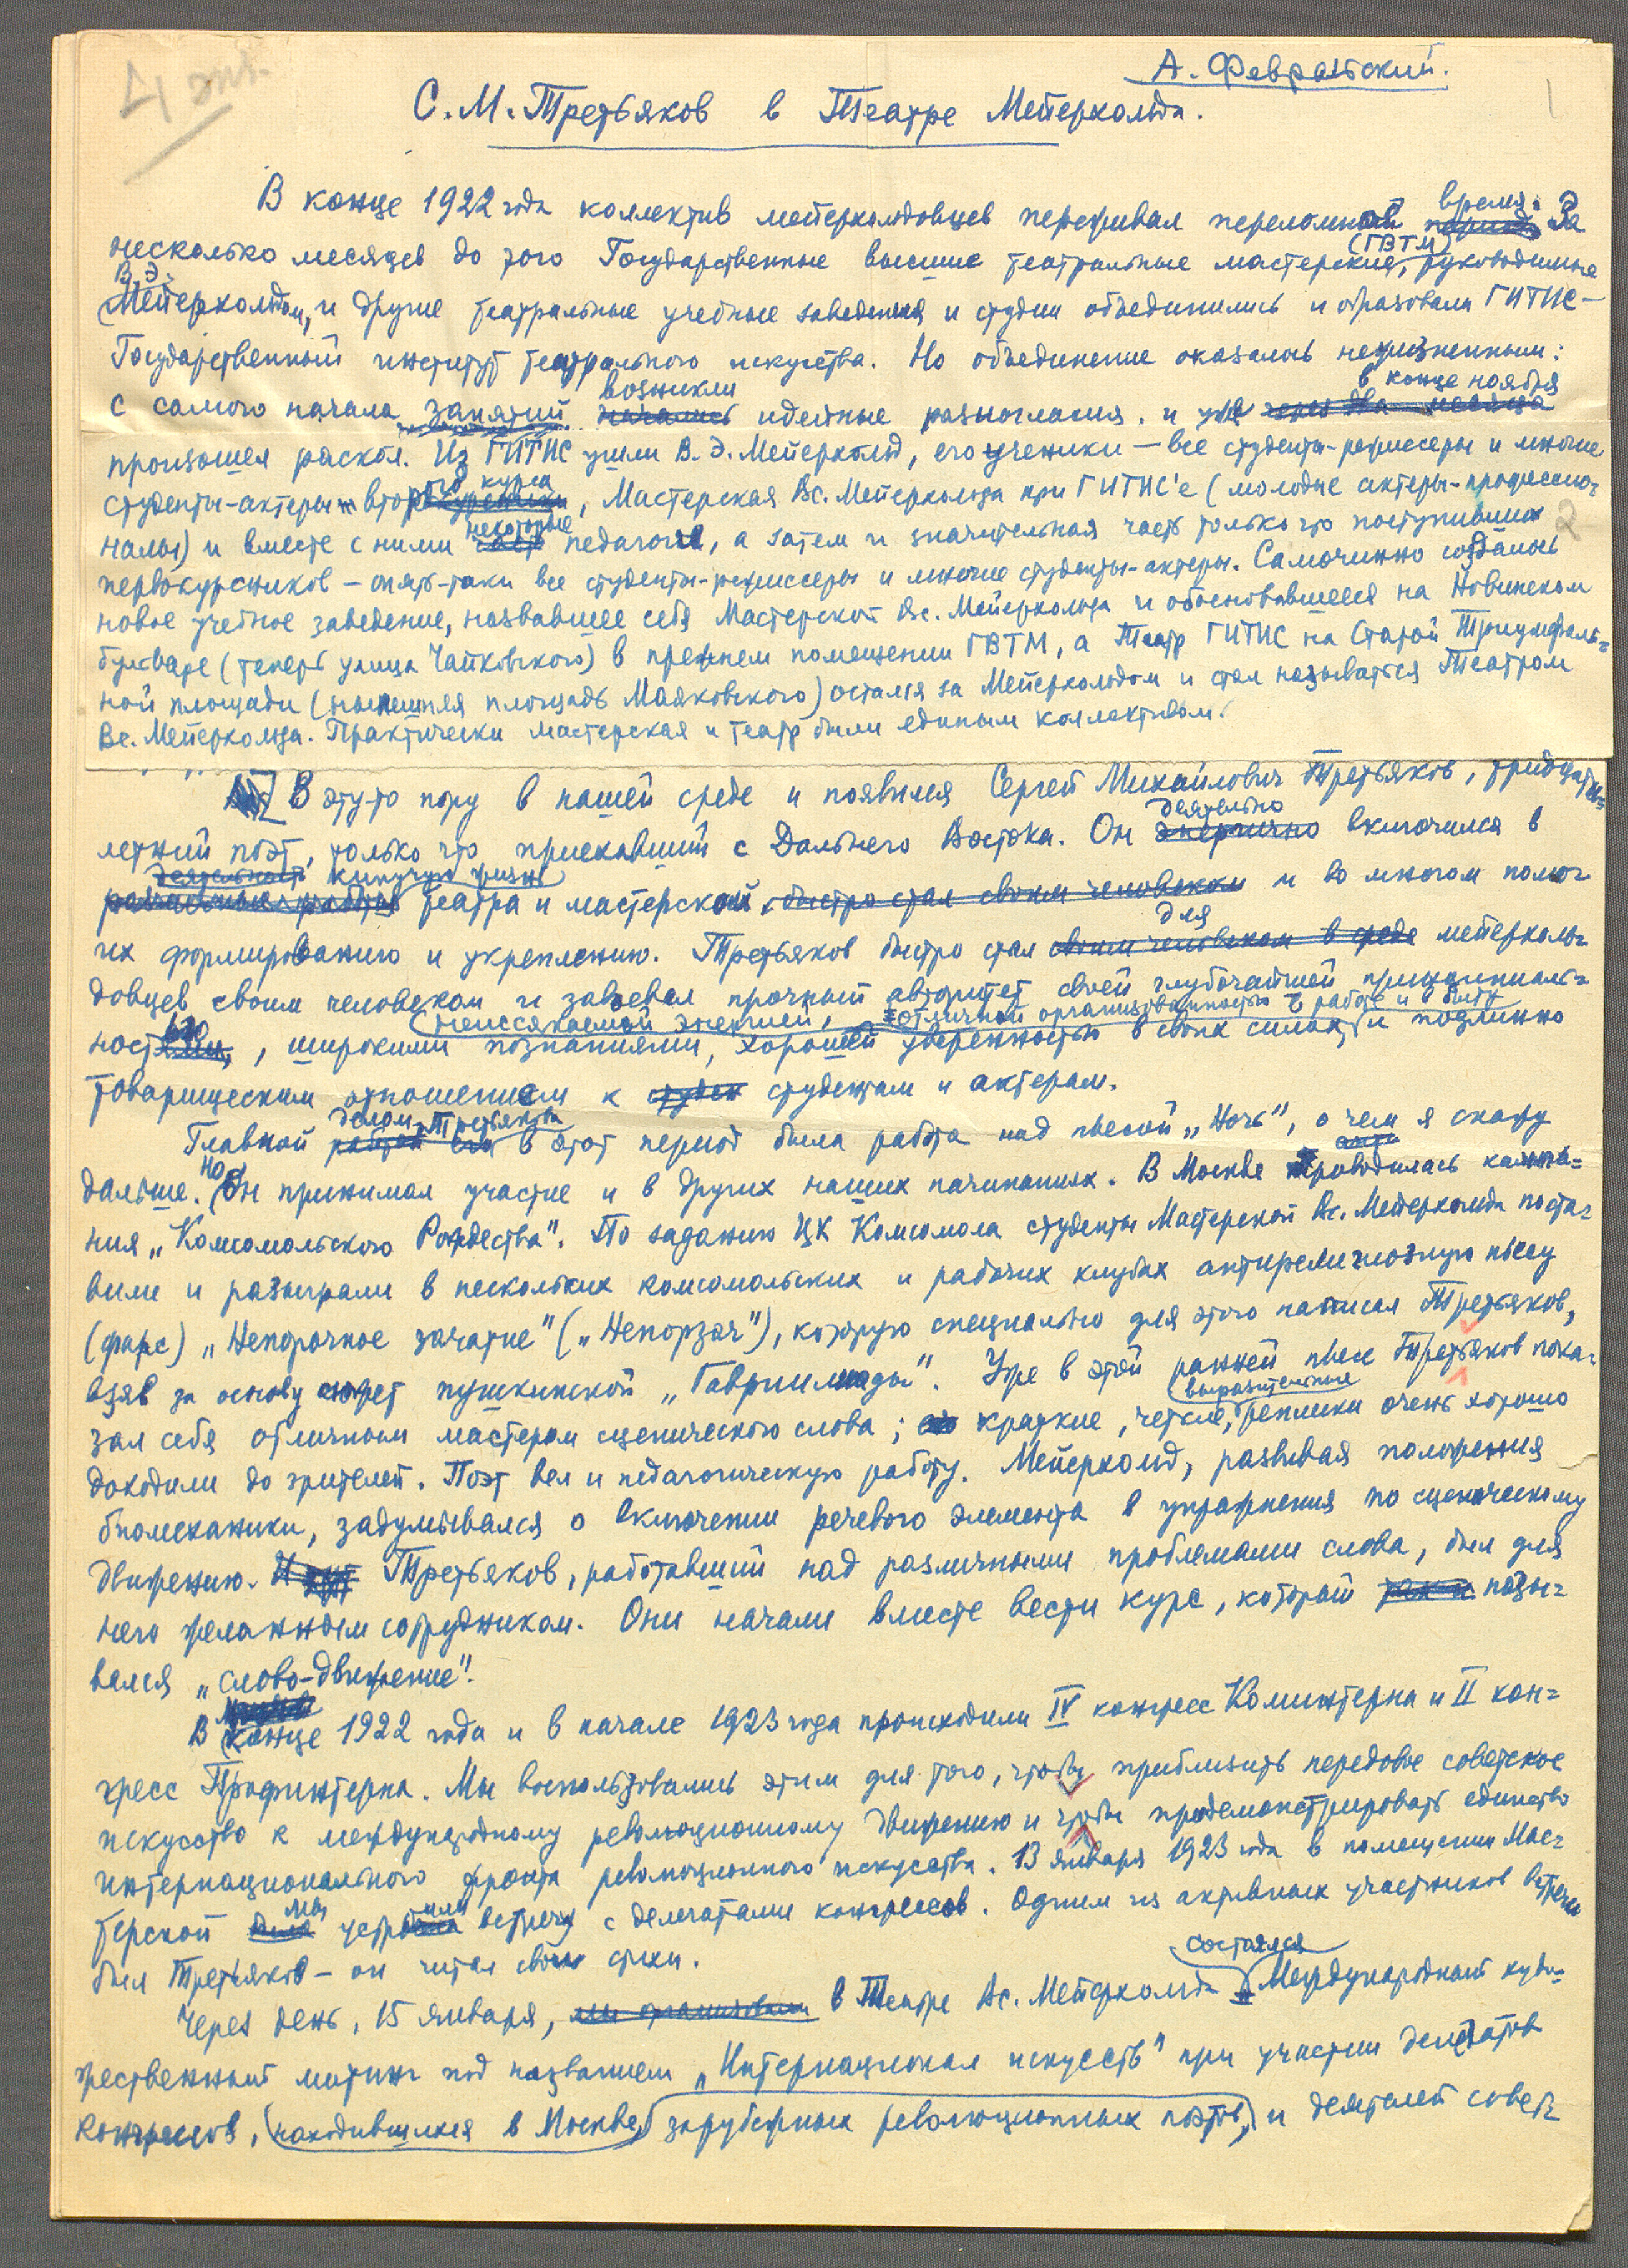 4 экз.
А. Февральский.
1
С. М. Третьяков в Театре Мейерхольда.
время.
В конце 1922 года коллектив мейерхольдовцев переживал переломное период. За
(ГВТМ)
несколько месяцев до того Государственные высшие театральные мастерские, руководимые
В. Э.
Мейерхольдом, и другие театральные учебные заведения и студии объединились и образовали ГИТИС –
Государственный институт театрального искусства. Но объединение оказалось нежизненным:
возникли в конце ноября
с самого начала занятий начались идейные разногласия. и уже через два месяца
произошел раскол. Из ГИТИС ушли В. Э. Мейерхольд, его ученики – все студенты-режиссеры и многие
ого курса
студенты-актеры второкурсники, Мастерская Вс. Мейерхольда при ГИТИС'е (молодые актеры-профессио-
некоторые
налы) и вместе с ними часть педагогов, а затем и значительная часть только что поступивших
2
первокурсников – опять-таки все студенты-режиссеры и многие студенты-актеры. Самочинно создалось
новое учебное заведение, назвавшее себя Мастерской Вс. Мейерхольда и обосновавшееся на Новинском
бульваре (теперь улица Чайковского) в прежнем помещении ГВТМ, а Театр ГИТИС на Старой Триумфаль-
ной площади (нынешняя площадь Маяковского) остался за Мейерхольдом и стал называться Театром
Вс. Мейерхольда. Практически мастерская и театр были единым коллективом.
В эту-то пору в нашей среде и появился Сергей Михайлович Третьяков, тридцати-
деятельно
летний поэт, только что приехавший с Дальнего Востока. Он энергично включился в
деятельность кипучую жизнь
театра и мастерской, быстро стал своим человеком и во многом помог
для
их формированию и укреплению. Третьяков быстро стал своим человеком в среде мейерхоль-
довцев своим человеком и завоевал прочный авторитет своей глубочайшей принципиаль-
неиссякаемой энергией, отличной организованностью в работе и в быту
ностью, широкими познаниями, хорошей уверенностью в своих силах и подлинно
товарищеским отношением к студен студентам и актерам.
делом Третьякова
Главной работой его в этот период была работа над пьесой „Ночь", о чем я скажу
Но
дальше. Он принимал участие и в других наших начинаниях. В Москве проводилась кампа-
ния „Комсомольского Рождества". По заданию ЦК Комсомола студенты Мастерской Вс. Мейерхольда поста-
вили и разыграли в нескольких комсомольских и рабочих клубах антирелигиозную пьесу
(фарс) „Непорочное зачатие" („Непорзач"), которую специально для этого написал Третьяков,
взяв за основу сюжет пушкинской „Гавриилиады". Уже в этой ранней пьесе Третьяков пока-
выразительные
зал себя отличным мастером сценического слова; его краткие, четкие, реплики очень хорошо
доходили до зрителей. Поэт вел и педагогическую работу. Мейерхольд, развивая положения
биомеханики, задумывался о включении речевого элемента в упражнения по сценическому
движению. И тут Третьяков, работавший над различными проблемами слова, был для
него желанным сотрудником. Они начали вместе вести курс, который так и назы-
вался „слово-движение".
В конце 1922 года и в начале 1923 года происходили IV конгресс Коминтерна и II кон-
гресс Профинтерна. Мы воспользовались этим для того, чтобы приблизить передовое советское
искусство к международному революционному движению и чтобы продемонстрировать единство
интернационального фронта революционного искусства. 13 января 1923 года в помещении Мас-
мы или
терской была устроена встречу с делегатами конгрессов. Одним из активных участников встречи
был Третьяков – он читал свои стихи.
состоялся
Через день, 15 января, мы организовали в Театре Вс. Мейерхольда Международный худо-
жественный митинг под названием „Интернационал искусств" при участии делегатов
конгрессов, находившихся в Москве, зарубежных революционных поэтов, и деятелей совет-